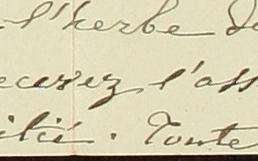 l'herbe de
ecevez l'ass
itié. Toute